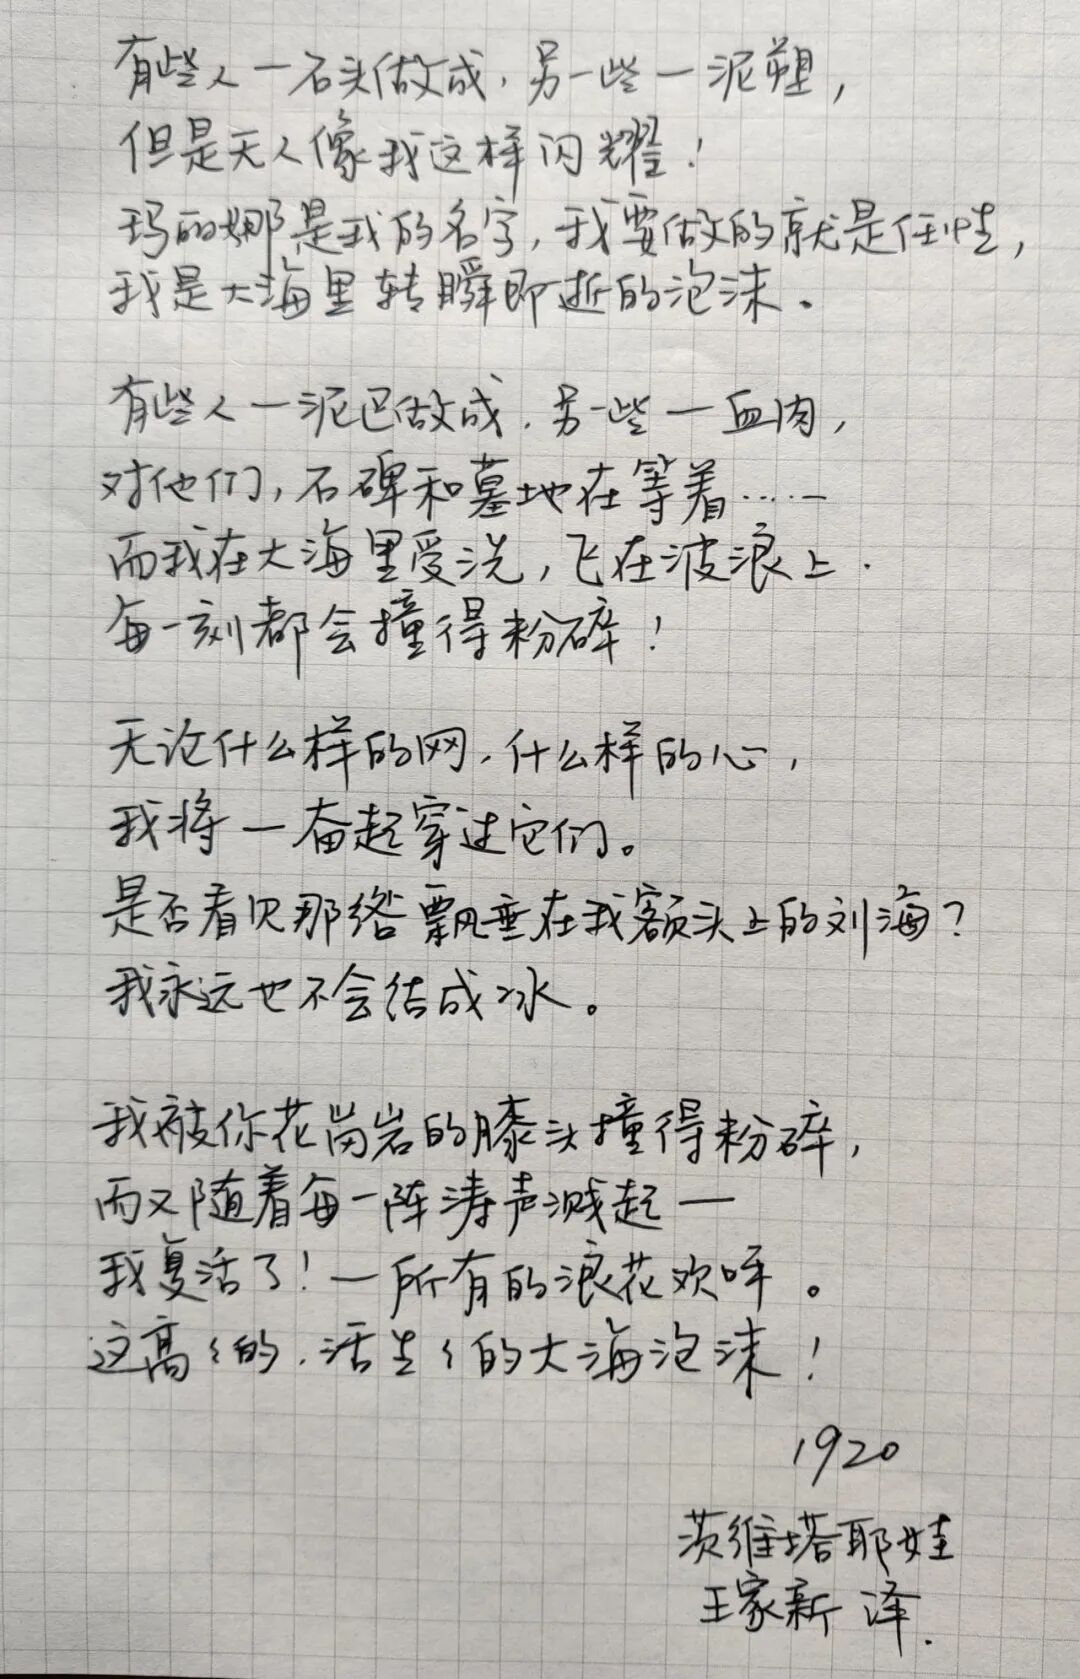 有些人一石头做成,另一些一泥塑,
但是无人像我这样闪耀!
玛丽娜是我的名字,我要做的就是任性,
我是大海里转瞬即逝的泡沫。
有些人一泥巴做成,另一些一血肉,
对他们,石碑和墓地在等着……
而我在大海里受洗,飞在波浪上.
每一刻都会撞得粉碎!
无论什么样的网,什么样的心,
我将一奋起穿过它们。
是否看见那绺飘垂在我额头上的刘海?
我永远也不会结成冰。
我被你花岗岩的膝头撞得粉碎,
而又随着每一阵涛声溅起一
我复活了!一所有的浪花欢呼。
这高々的,活生々的大海泡沫!
1920
茨维塔耶娃
王家新 译.